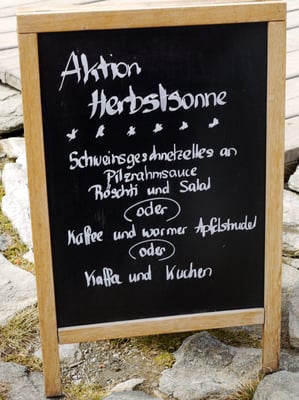 Aktion
Herbstsonne
Schweinsgeschnetzelles an
Pilzrahmsauce
Röschti und Salat
oder
Kaffee und warmer Apfelstrudel
oder
Kaffa und Kuchen